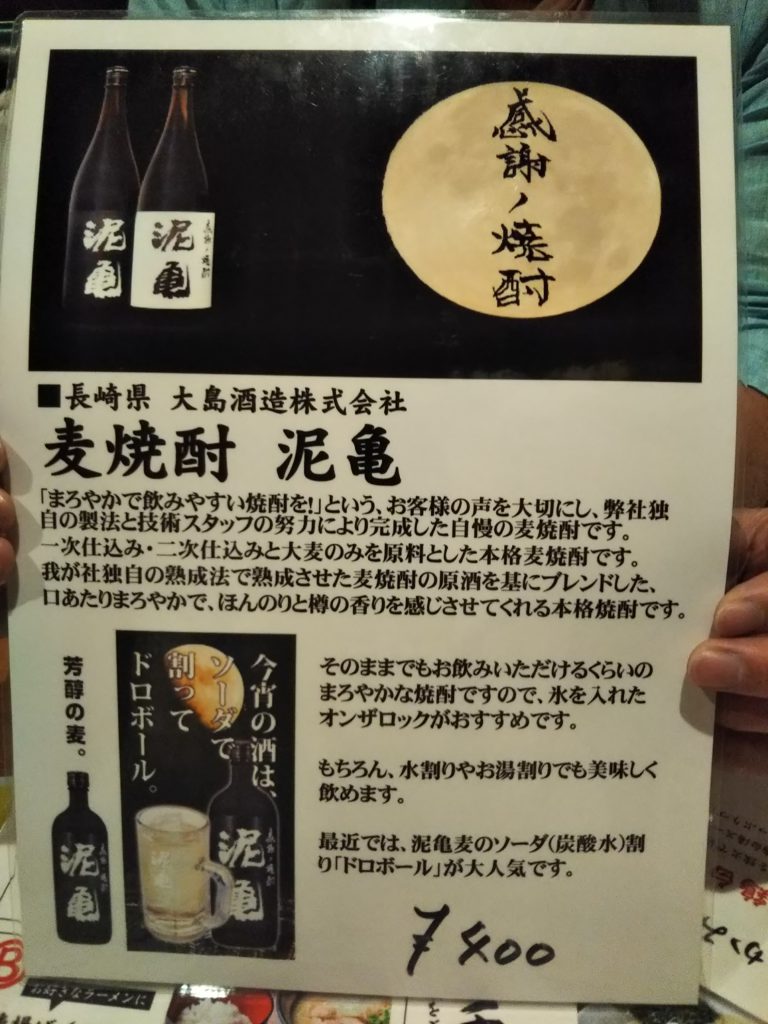 感謝ノ焼酎
泥亀
泥亀
感謝ノ焼酎
■長崎県 大島酒造株式会社
麦焼酎 泥亀
「まろやかで飲みやすい焼酎を!」という、お客様の声を大切にし、弊社独
自の製法と技術スタッフの努力により完成した自慢の麦焼酎です。
一次仕込み・二次仕込みと大麦のみを原料とした本格麦焼酎です。
我が社独自の熟成法で熟成させた麦焼酎の原酒を基にブレンドした、
口あたりまろやかで、ほんのりと樽の香りを感じさせてくれる本格焼酎です。
芳醇の麦。
泥亀
今宵の酒は、
ソーダで
割って
ドロボール。
泥亀
そのままでもお飲みいただけるくらいの
まろやかな焼酎ですので、氷を入れた
オンザロックがおすすめです。
もちろん、水割りやお湯割りでも美味しく
飲めます。
最近では、泥亀麦のソーダ(炭酸水)割
り「ドロボール」が大人気です。
¥400
お好きなラーメンに